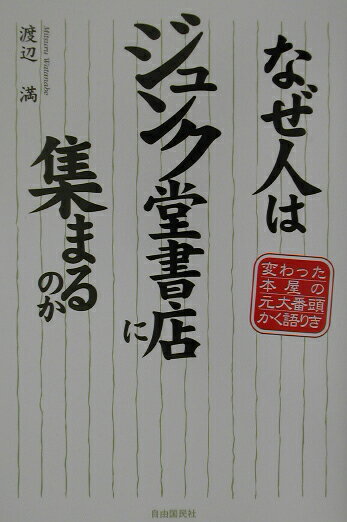 なぜ人は
ジュンク堂書店に
集まるのか
変わった
本屋の
元大番頭
かく語りき
渡辺 満
Mitsuru Watanabe
自由国民社